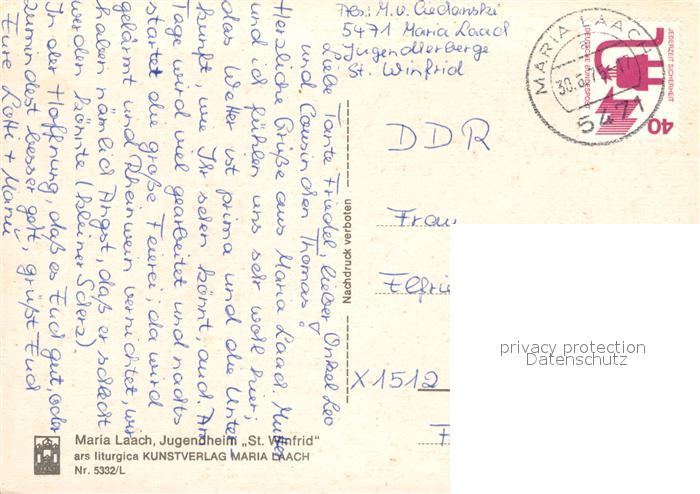 Abs.: M. v. Ciedanski
5471 Maria Laach
Jugendherberge
St. Winfrid
MARIA LAACH
5471
JEDERZEIT SICHERHEIT
DEUTSCHE BUNDESPOST
40
Liebe Tante Friedel, lieber Onkel Leo
und Cousinchen Thomas!
Herzliche Grüße aus Maria Laach. Mutter
und ich fühlen uns sehr wohl hier,
das Wetter ist prima und die Unter-
kunft, wie Ihr sehen könnt, auch. Am
Tage wird viel gearbeitet und nachts
startet die große Feierei, da wird
gelärmt und Rheinwein vernichtet, wir
haben nämlich Angst, daß er schlecht
werden könnte (kleiner Scherz).
In der Hoffnung, daß es Euch gut, oder
zumindest besser geht, grüßt Euch
Eure Lotte +
Nachdruck verboten
DDR
Frau
Elfrie
X1512
F
privacy protection
Datenschutz
Maria Laach, Jugendheim „St. Winfrid"
ars liturgica KUNSTVERLAG MARIA LAACH
Nr. 5332/L